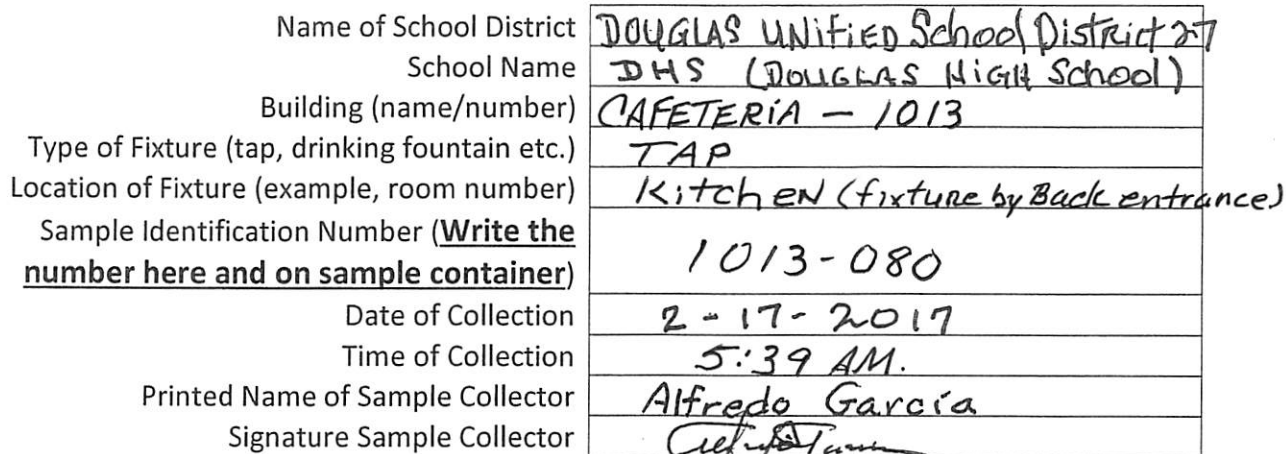 Name of School District DOUGLAS UNiFiED School District 27
School Name DHS (DOUGLAS HiGH School)
Building (name/number) CAFETERiA – 1013
Type of Fixture (tap, drinking fountain etc.) TAP
Location of Fixture (example, room number) KitchEN (fixture by Back entrance)
Sample Identification Number (Write the
number here and on sample container) 1013-080
Date of Collection 2-17-2017
Time of Collection 5:39 AM.
Printed Name of Sample Collector Alfredo García
Signature Sample Collector